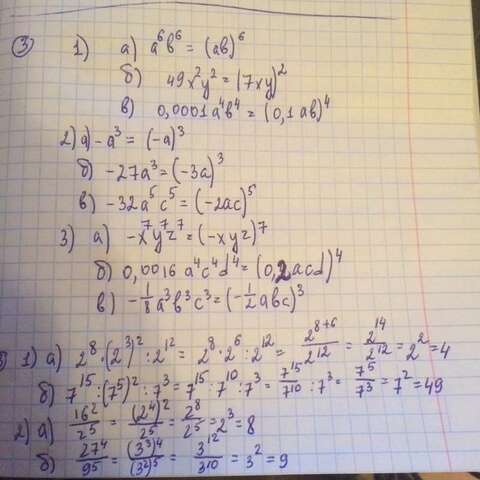 ③ 1) а) a⁶b⁶ = (ab)⁶
б) 49x²y² = (7xy)²
в) 0,0001a⁴b⁴ = (0,1ab)⁴
2) а) -a³ = (-a)³
б) -27a³ = (-3a)³
в) -32a⁵c⁵ = (-2ac)⁵
3) а) -x⁷y⁷z⁷ = (-xyz)⁷
б) 0,0016a⁴c⁴d⁴ = (0,2acd)⁴
в) -1/8a³b³c³ = (-1/2abc)³
1) а) 2⁸·(2³)² : 2¹² = 2⁸·2⁶ : 2¹² = 2⁸⁺⁶/2¹² = 2¹⁴/2¹² = 2² = 4
б) 7¹⁵ : (7⁵)² : 7³ = 7¹⁵ : 7¹⁰ : 7³ = 7¹⁵/7¹⁰ : 7³ = 7⁵/7³ = 7² = 49
2) а) 16²/2⁵ = (2⁴)²/2⁵ = 2⁸/2⁵ = 2³ = 8
б) 27⁴/9⁵ = (3³)⁴/(3²)⁵ = 3¹²/3¹⁰ = 3² = 9